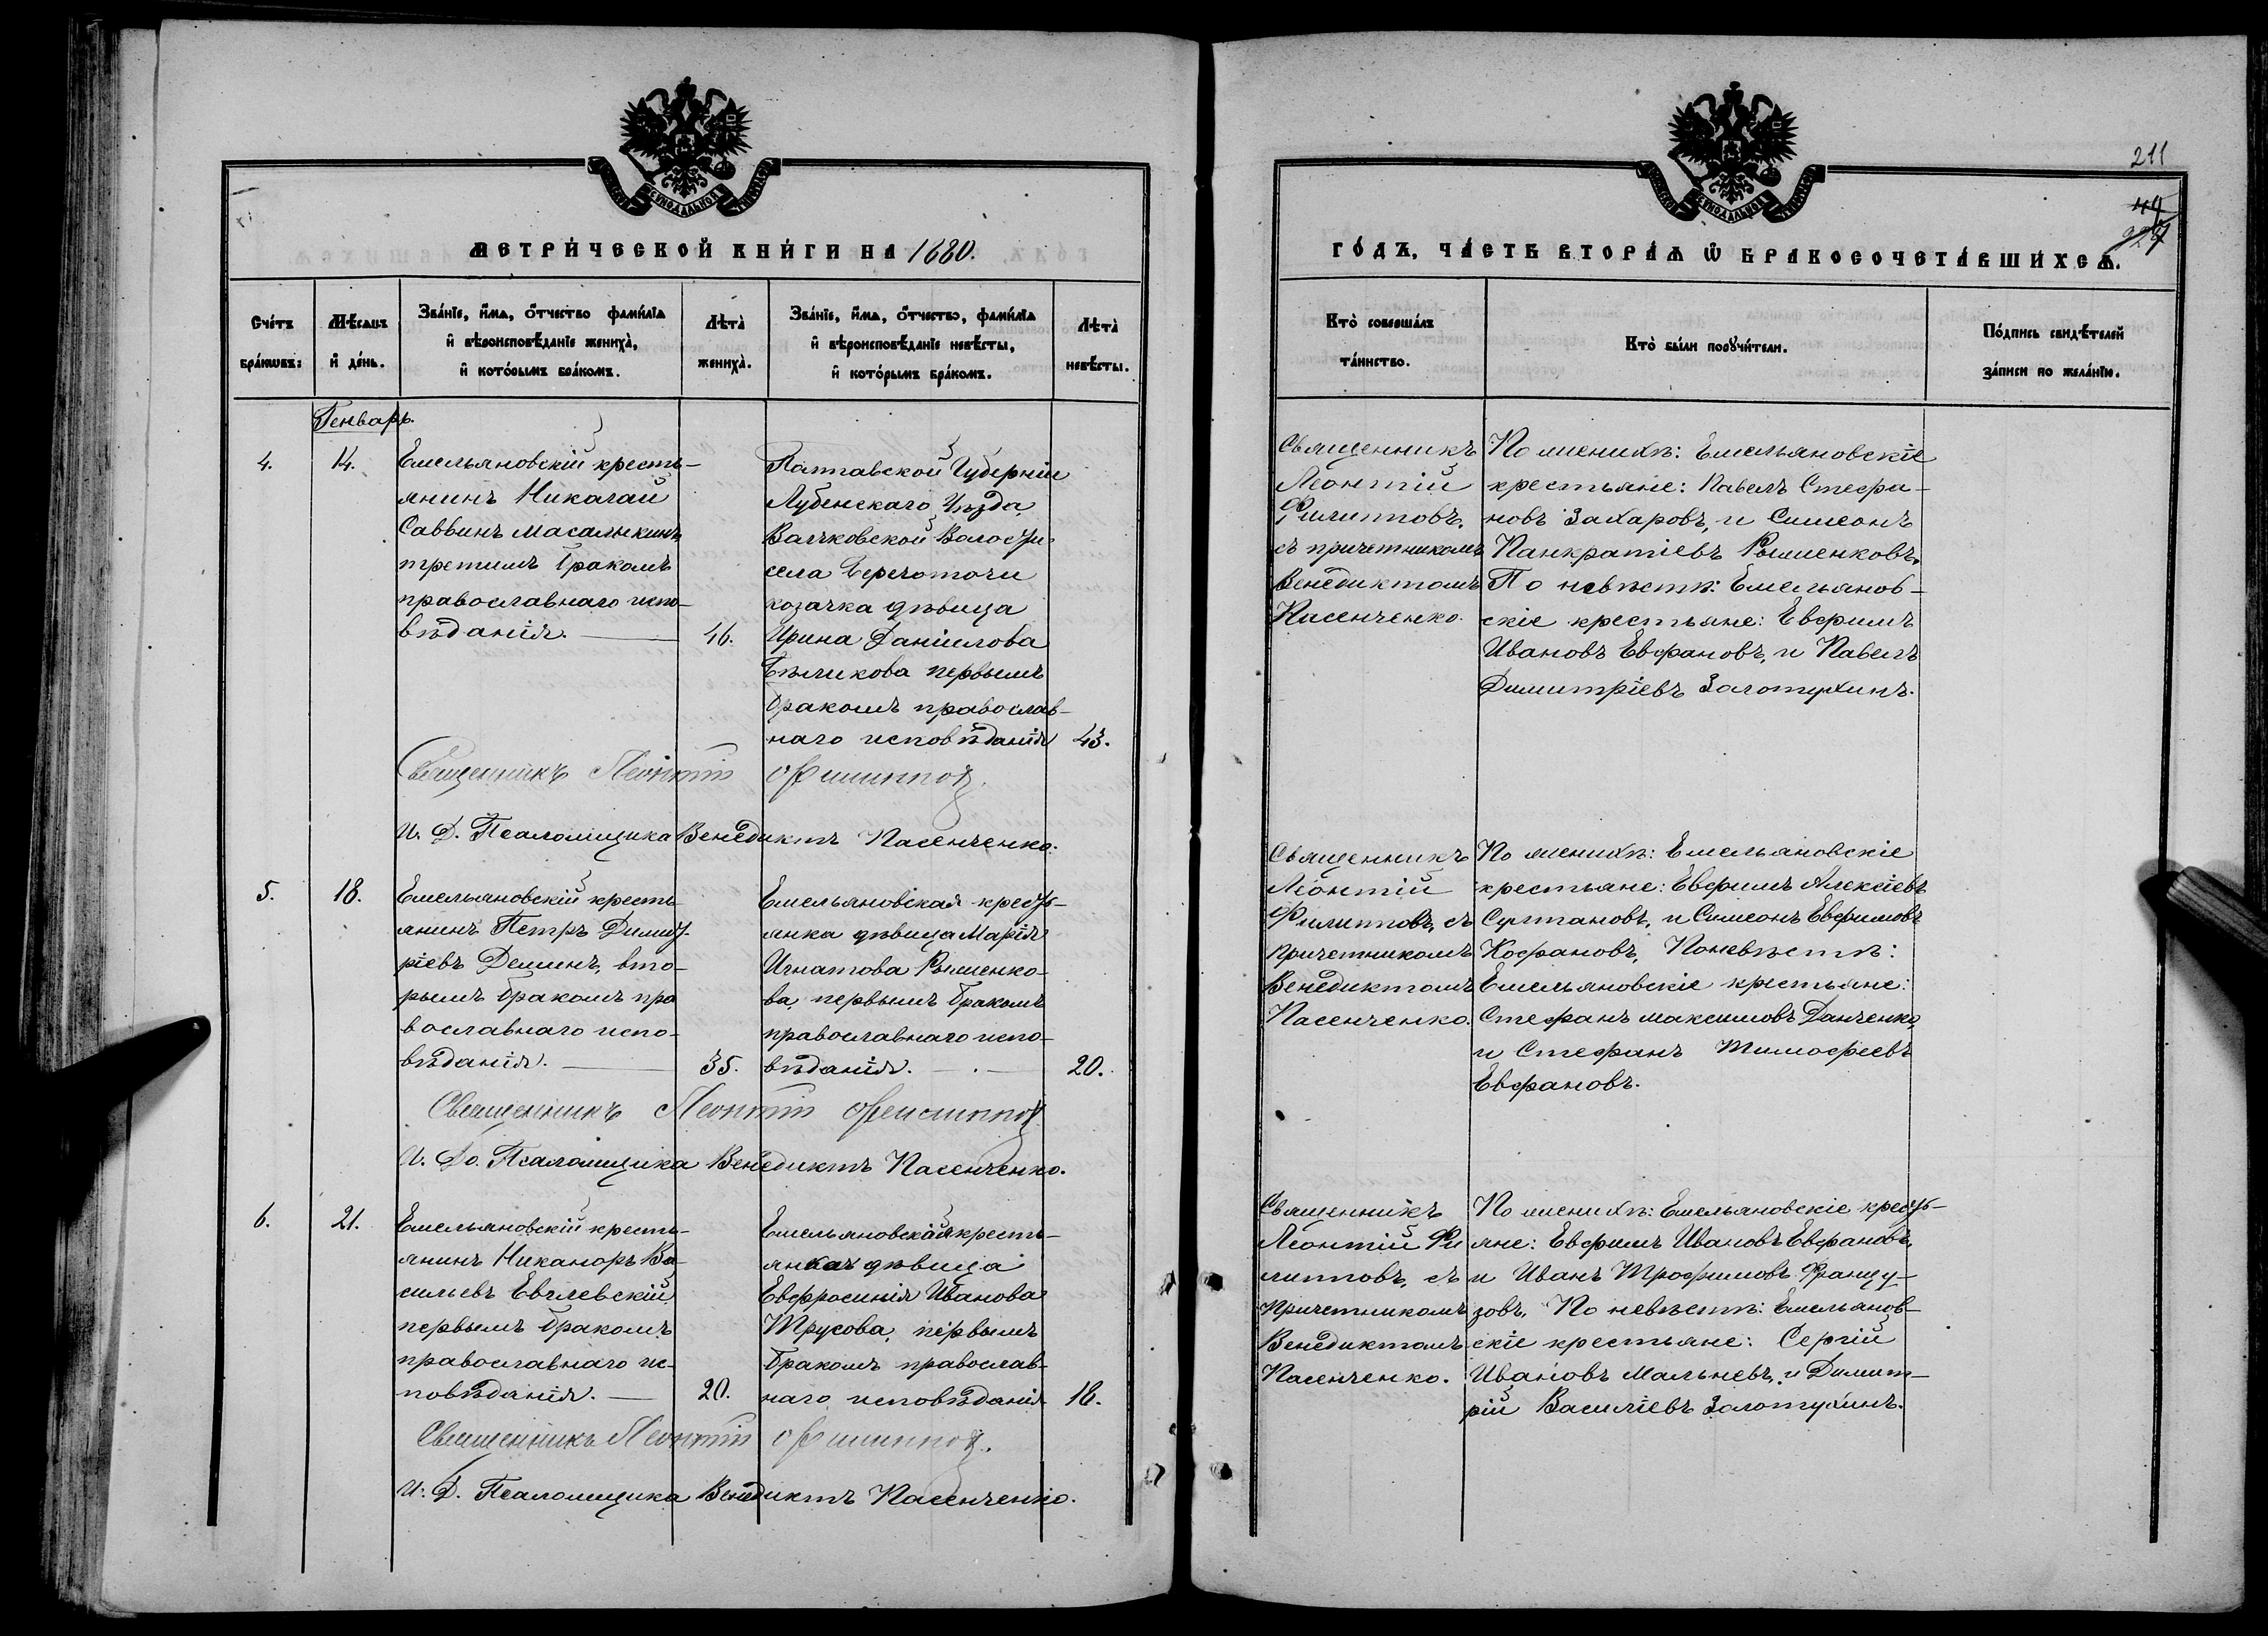 211
44
924
МЕТРИЧЕСКОЙ КНИГИ НА 1880.
ГОДЪ, ЧАСТЬ ВТОРАѦ Ѿ БРАКОСОЧЕТАВШИХСѦ.
Счетъ браковъ:
Мѣсѧцъ и день.
Званіе, имѧ, отчество фамиліѧ
и вѣроисповѣданіе жениха,
и которымъ бракомъ.
Лѣта жениха.
Званіе, имѧ, отчество, фамиліѧ
и вѣроисповѣданіе невѣсты,
и которымъ бракомъ.
Лѣта невѣсты.
Кто совершалъ
таинство.
Кто были порꙋчители.
Подпись свидѣтелей
записи по желанію.
Генварь.
4.
14.
Емельяновскій кресть-
янинъ Николай
Саввинъ Масалыкинъ
третимъ бракомъ
православнаго испо-
вѣданія. 46.
Полтавской Губерніи
Лубенскаго Уѣзда,
Волчковской Волости
села Береготочи
козачка дѣвица
Ирина Даніилова
Бѣликова первымъ
бракомъ православ-
наго исповѣданія 43.
Священникъ
Леонтій
Филипповъ,
съ причетникомъ
Венедиктомъ
Пасенченко.
По женихѣ: Емельяновскіе
крестьяне: Павелъ Стефа-
новъ Захаровъ, и Симеонъ
Панкратіевъ Рыженковъ,
По невѣстѣ: Емельянов-
скіе крестьяне: Евфимъ
Ивановъ Евфановъ, и Павелъ
Димитріевъ Золотухинъ.
Священникъ Леонтій Филипповъ.
И. Д. Псаломщика Венедиктъ Пасенченко.
5.
18.
Емельяновскій кресть
янинъ Петръ Димит-
ріевъ Деминъ, вто-
рымъ бракомъ пра
вославнаго испо-
вѣданія. 35.
Емельяновская кресть-
янка дѣвица Марія
Игнатова Рыженко-
ва, первымъ бракомъ
православнаго испо-
вѣданія. 20.
Священникъ
Леонтій
Филипповъ, съ
причетникомъ
Венедиктомъ
Пасенченко.
По женихѣ: Емельяновскіе
крестьяне: Евфимъ Алексіевъ
Султановъ, и Симеонъ Евфимовъ
Кофановъ, По невѣстѣ:
Емельяновскіе крестьяне:
Стефанъ Максимовъ Данченко,
и Стефанъ Тимофеевъ
Евфановъ.
Священникъ Леонтій Филипповъ.
И. До. Псаломщика Венедиктъ Пасенченко.
6.
21.
Емельяновскій кресть-
янинъ Никаноръ Ва-
сильевъ Евглевскій
первымъ бракомъ
православнаго ис-
повѣданія. 20.
Емельяновская кресть-
янка дѣвица
Евфросинія Иванова
Трусова, первымъ
бракомъ православ-
наго исповѣданія 18.
Священникъ
Леонтій Фи
липповъ, съ
причетникомъ
Венедиктомъ
Пасенченко.
По женихѣ: Емельяновскіе кресть-
яне: Евфимъ Ивановъ Евфановъ,
и Иванъ Трофимовъ Францу-
зовъ. По невѣстѣ: Емельянов-
скіе крестьяне: Сергій
Ивановъ Мальневъ, и Димит-
рій Василіевъ Золотухинъ.
Священникъ Леонтій Филипповъ.
И. Д. Псаломщика Венедиктъ Пасенченко.